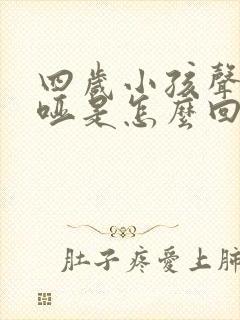 四歲小孩聲
啞是怎麼回
肚子疼愛上肺